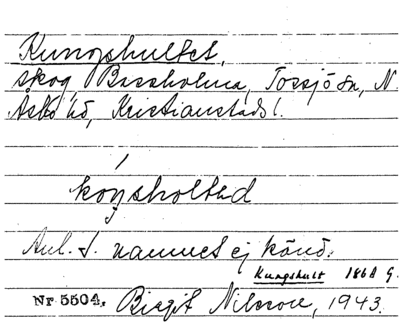 Kungshultet,
skog, Bassholma, Tossjö sn, N.
Åsbo hd, Kristianstads l.
kóŋsholtəd
Anl. t. namnet ej känd.
Kungshult 1861 G.
Nr 5504. Birgit Nilsson, 1943.